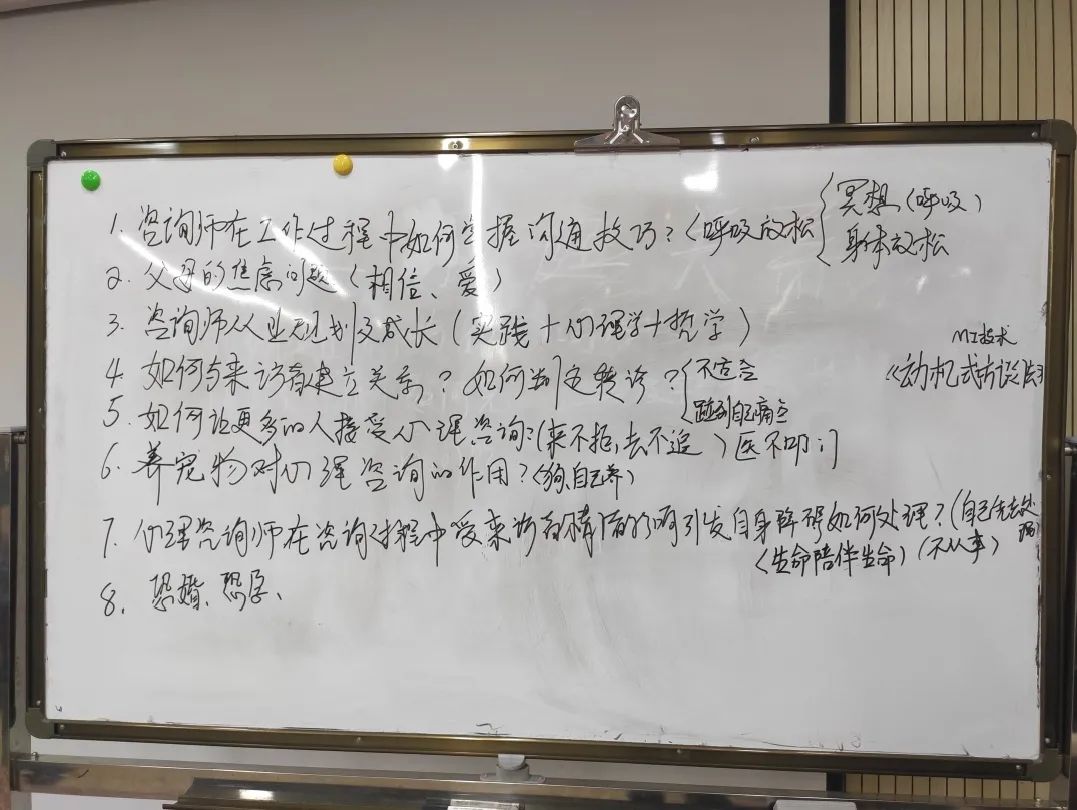 1. 咨询师在工作过程中如何掌握沟通技巧？（呼吸放松{冥想（呼吸）
身体放松
2. 父母的焦虑问题（相信、爱）
3. 咨询师从业规划及成长（实践+心理学+哲学）
MI技术
4. 如何与来访者建立关系？如何判定转诊？{不适合
《动机式访谈法》
踩到自己痛点
5. 如何让更多的人接受心理咨询？（来不拒，去不追）医不叩门
6. 养宠物对心理咨询的作用？（狗，自己养）
7. 心理咨询师在咨询过程中受来访者情绪影响引发自身障碍如何处理？（自己先去处理）
（生命陪伴生命）（不从事）
8. 恐婚、恐孕、